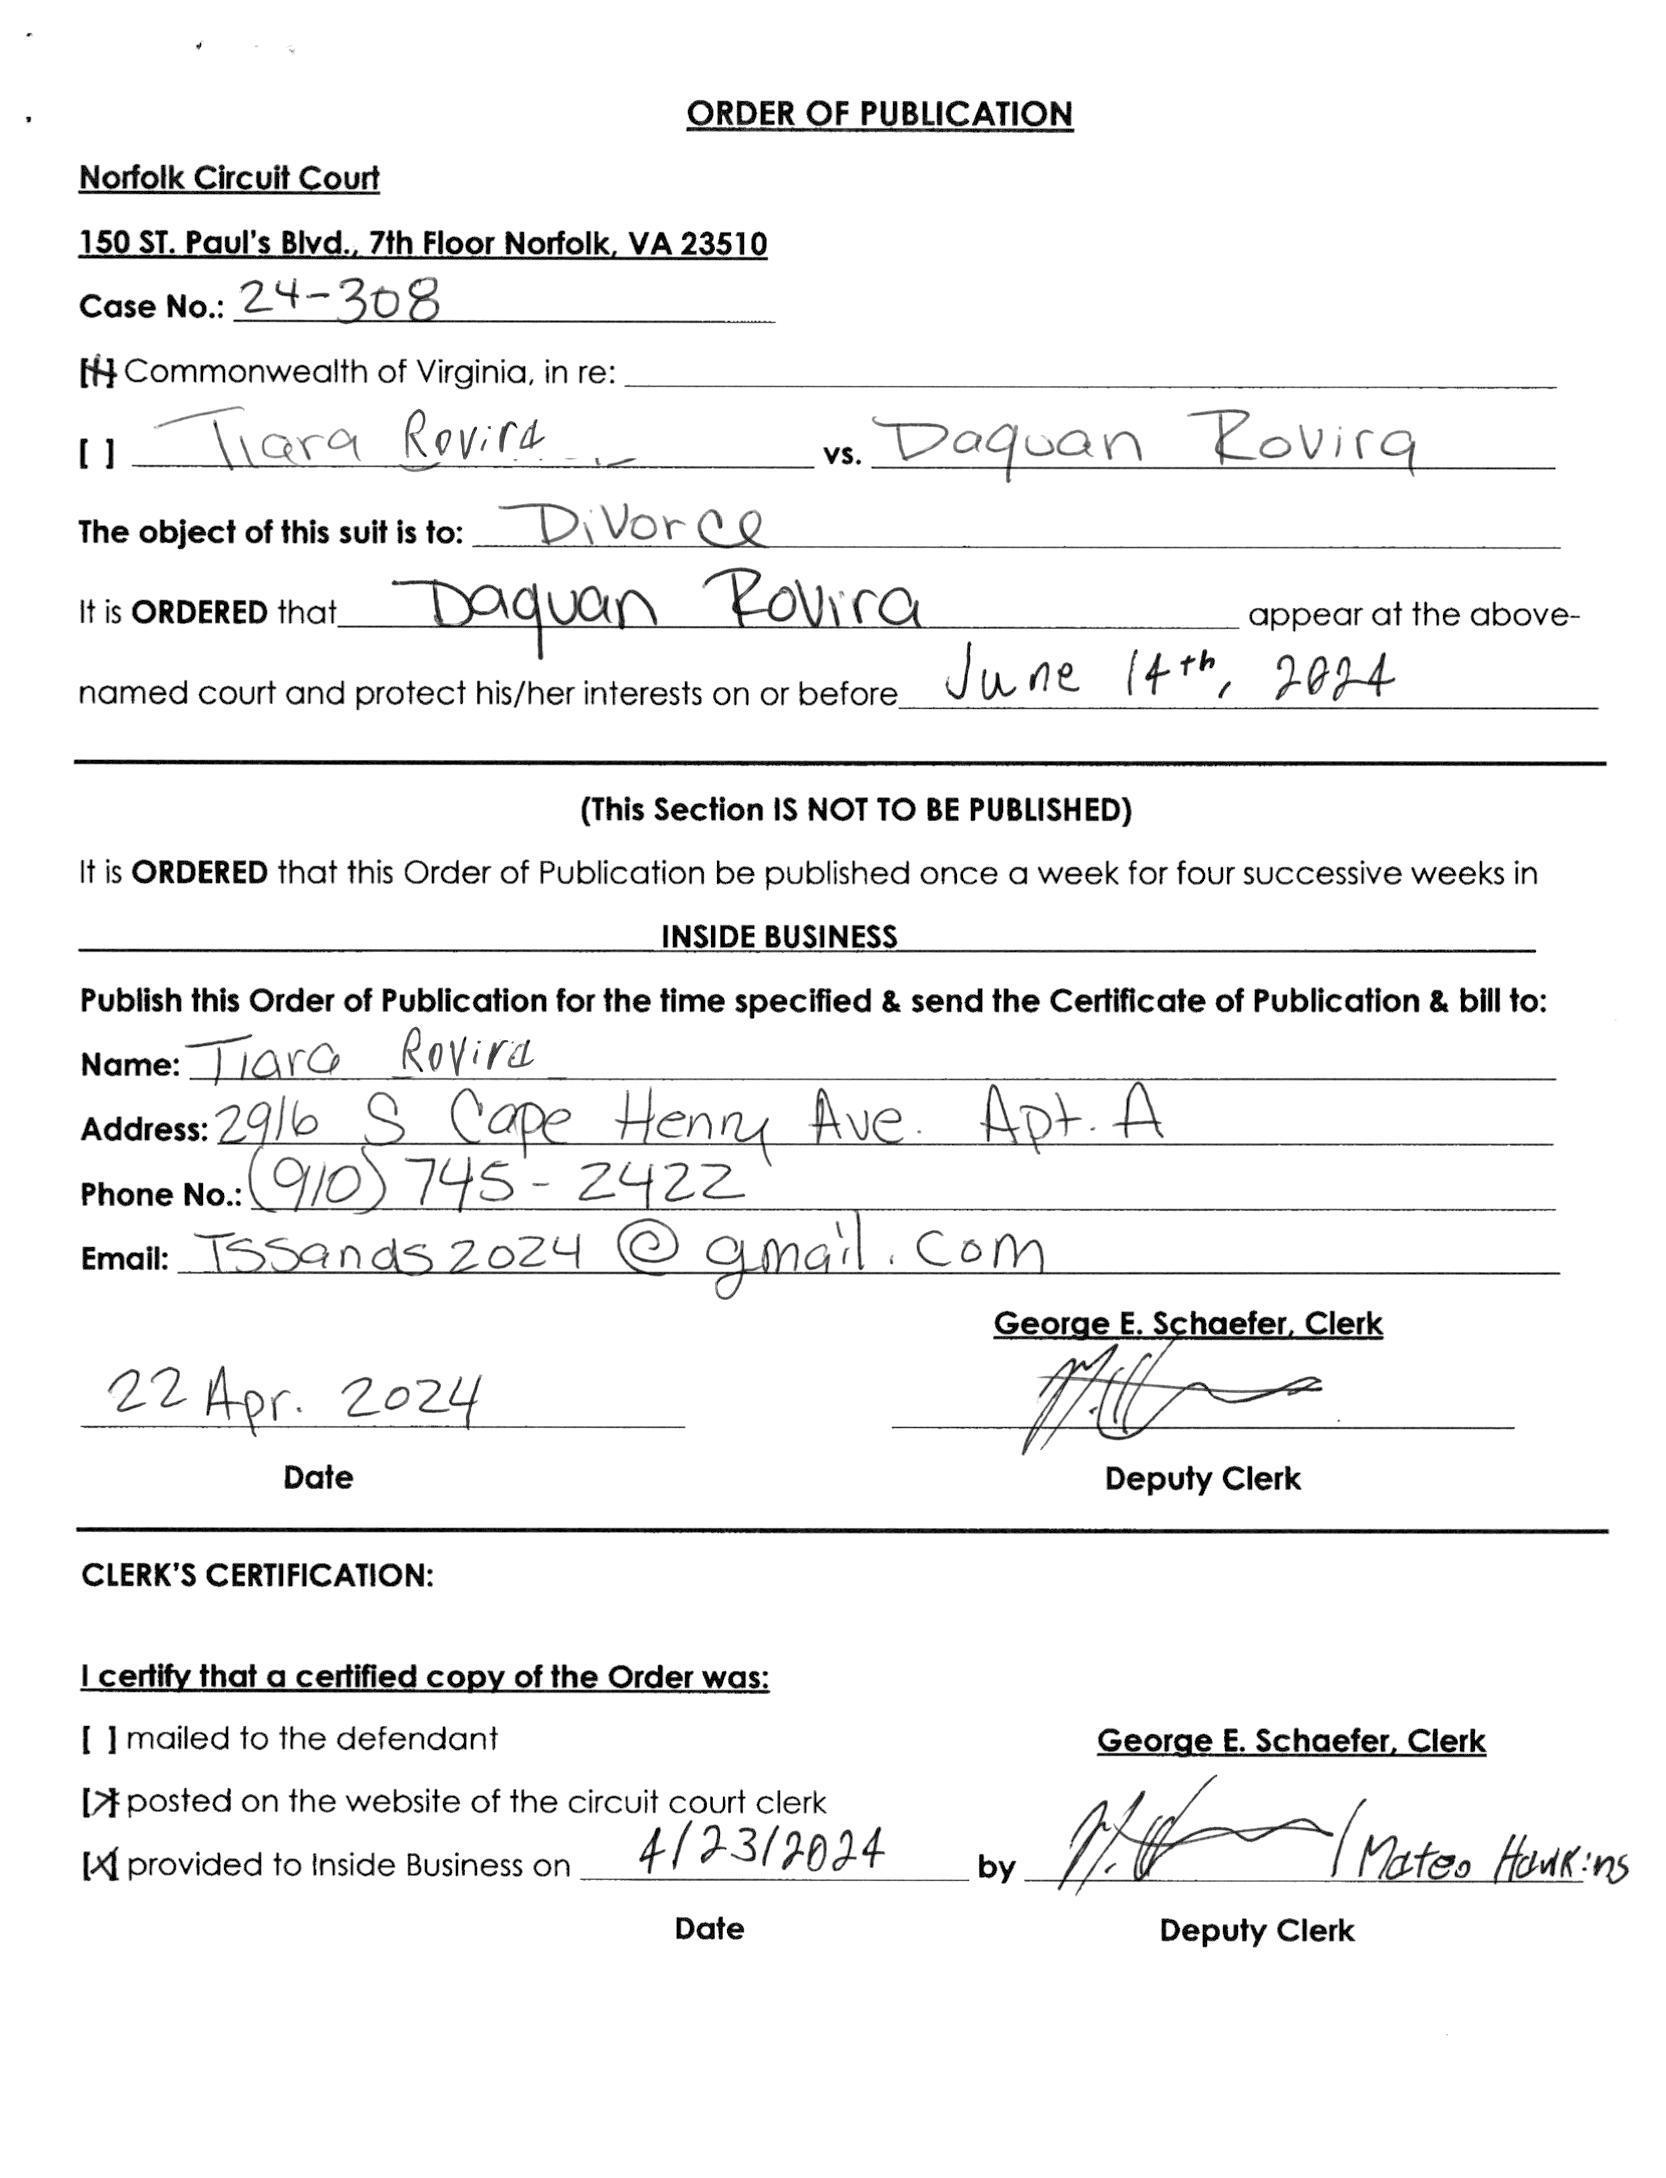 ORDER OF PUBLICATION
Norfolk Circuit Court
150 ST. Paul's Blvd., 7th Floor Norfolk, VA 23510
Case No.: 24-308
[ ] Commonwealth of Virginia, in re:
[ ] Tiara Rovira vs. Daquan Rovira
The object of this suit is to: Divorce
It is ORDERED that Daquan Rovira appear at the above-
named court and protect his/her interests on or before June 14th, 2024
(This Section IS NOT TO BE PUBLISHED)
It is ORDERED that this Order of Publication be published once a week for four successive weeks in
INSIDE BUSINESS
Publish this Order of Publication for the time specified & send the Certificate of Publication & bill to:
Name: Tiara Rovira
Address: 2916 S Cape Henry Ave. Apt. A
Phone No.: (910) 745-2422
Email: Tssands2024@gmail.com
George E. Schaefer, Clerk
22 Apr. 2024
Date Deputy Clerk
CLERK'S CERTIFICATION:
I certify that a certified copy of the Order was:
[ ] mailed to the defendant
George E. Schaefer, Clerk
[X] posted on the website of the circuit court clerk
[X] provided to Inside Business on 4/23/2024 by / Mateo Hawkins
Date Deputy Clerk